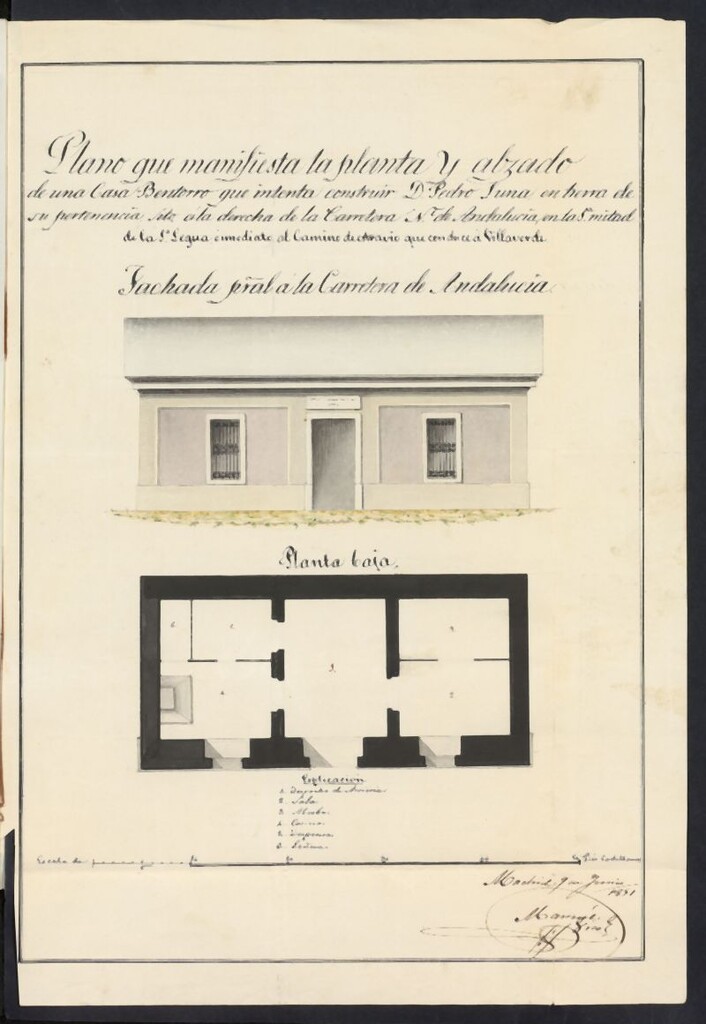 Plano que manifiesta la planta y alzado
de una Casa Bentorro que intenta construir Dn Pedro Luna en tierra de
su pertenencia sita a la derecha de la Carretera Nl de Andalucia, en la 1ª mitad
de la 1ª Legua inmediato al Camino de atravio que conduce a Villaverde
Fachada pral a la Carretera de Andalucia.
Planta baja.
6. 5. 3.
1.
4. 2.
Esplicacion
1. Despacho de
2. Sala.
3. Alcoba.
4. Cocina.
5. Despensa.
6.
Escala de Pies Castellanos
Madrid 9 de Junio
1851
Manuel